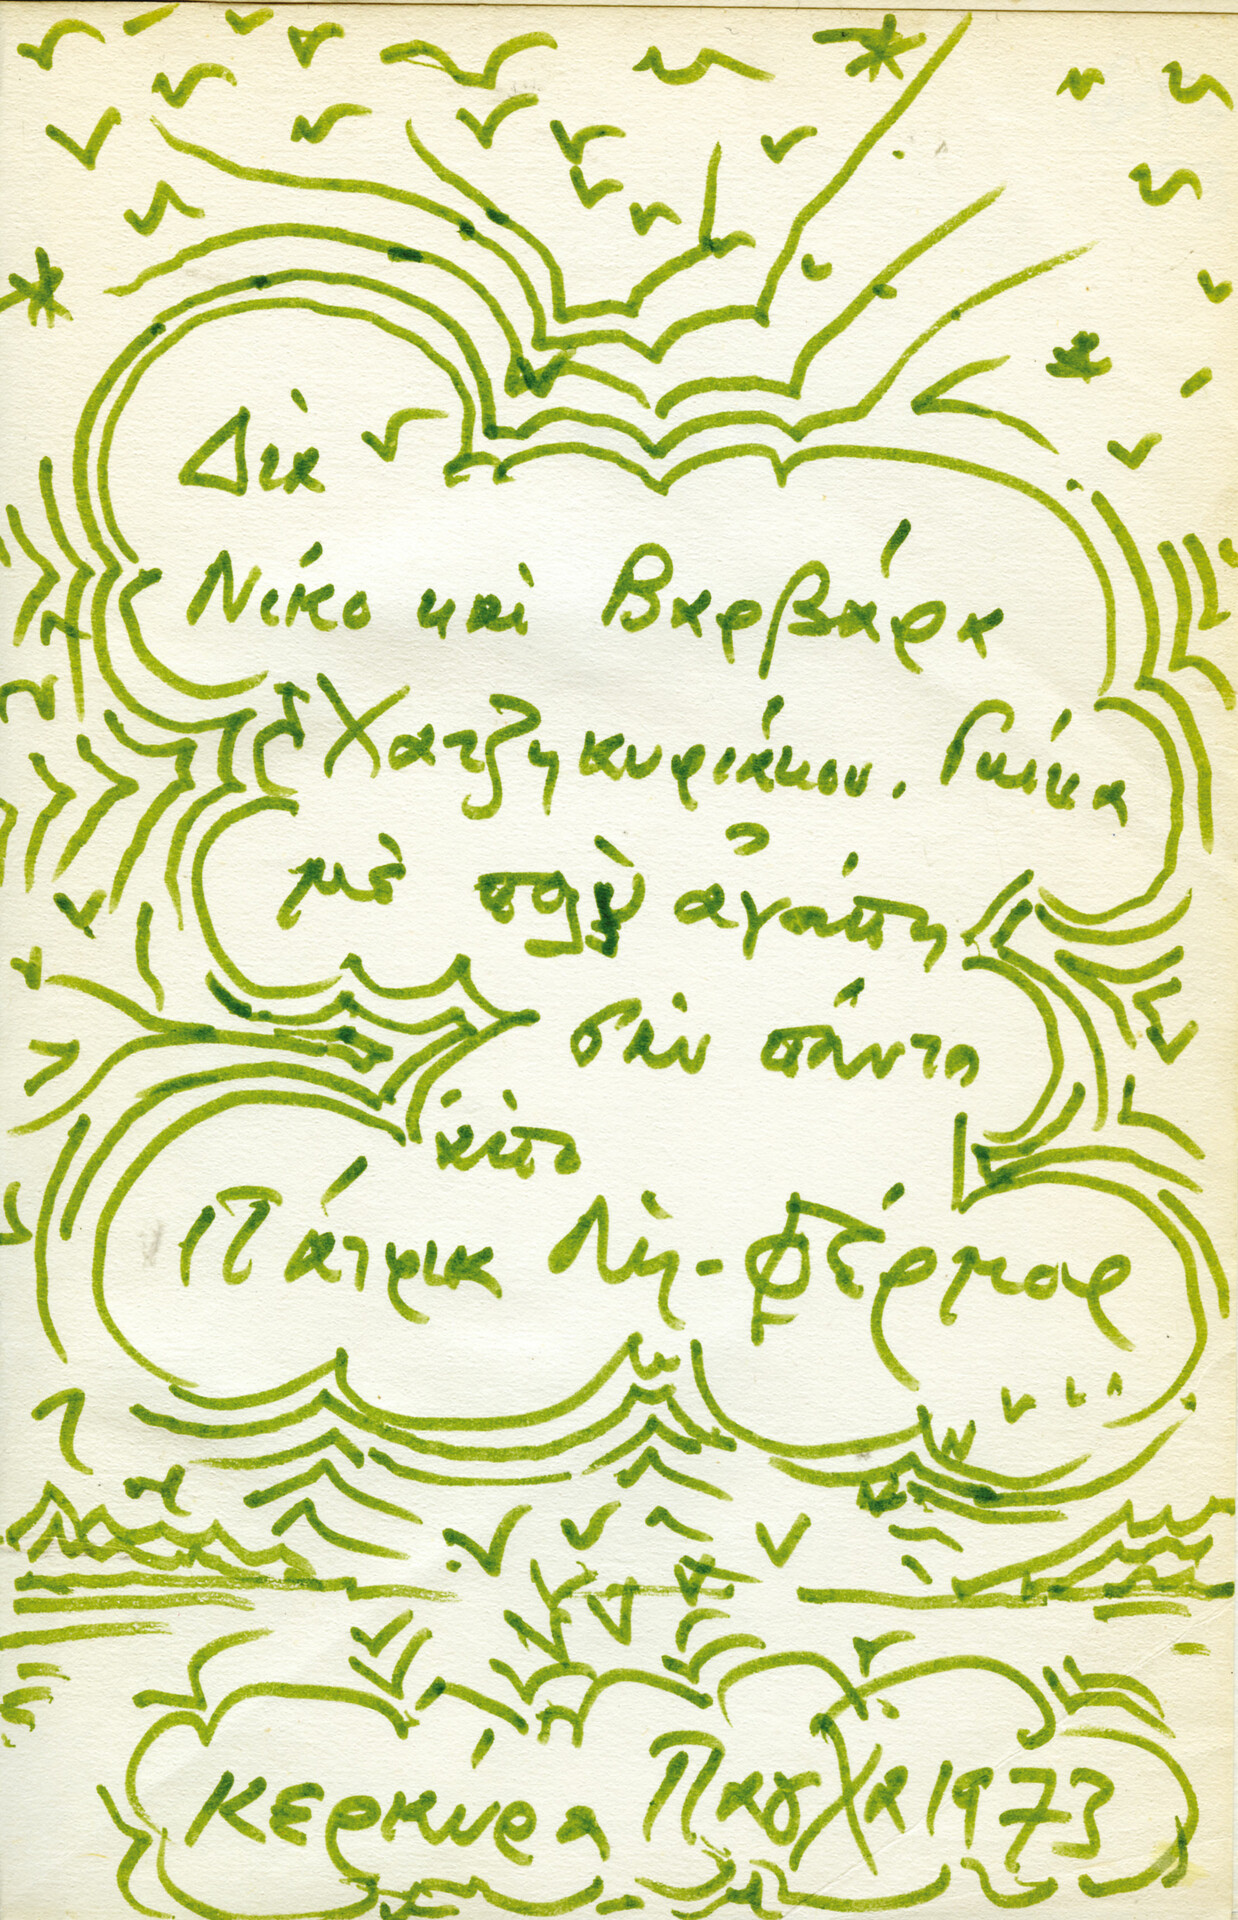 Διὰ
Νίκο καὶ Βαρβάρα
Χατζηκυριάκου. Γκίκα
μὲ πολὺ ἀγάπη
σὰν πάντα
ἀπὸ
Πάτρικ Λὴ-Φέρμορ
Κερκύρα Πασχα 1973